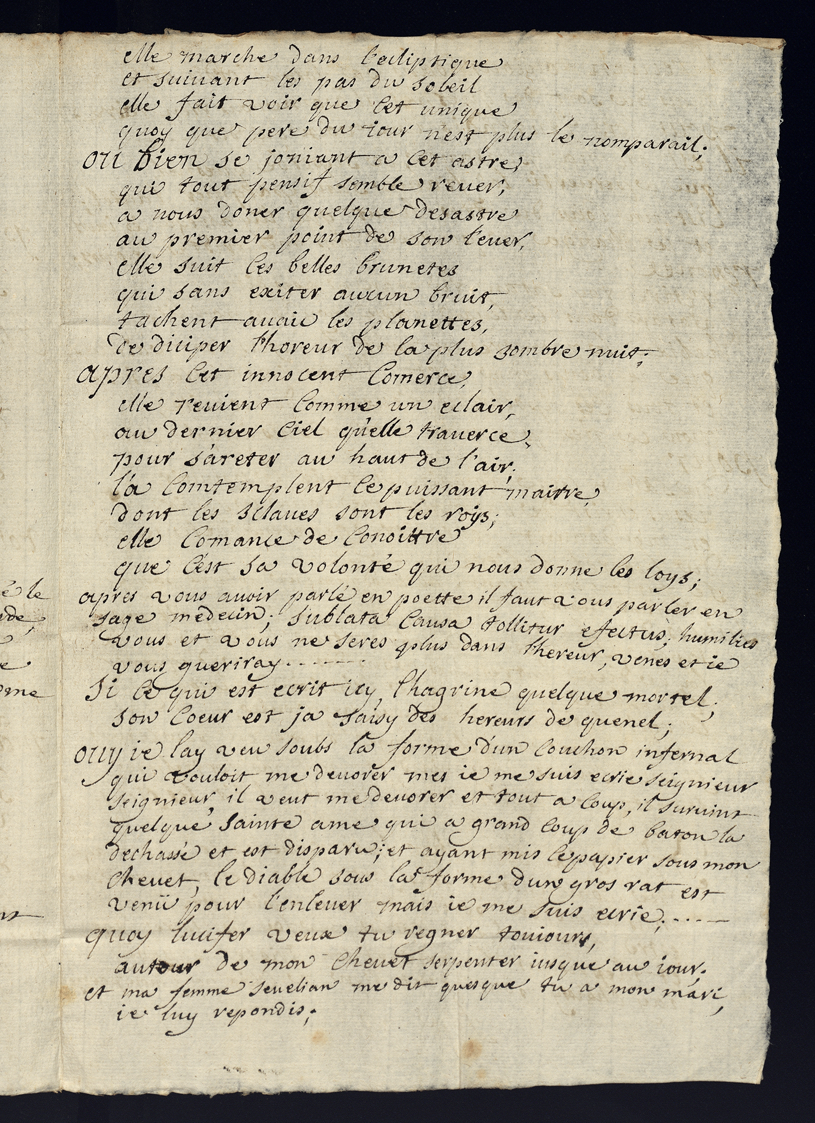 elle marche dans l'ecliptique
et suivant les pas du soleil
elle fait voir que cet unique
quoy que pere du iour n'est plus le nomparail;
ou bien se joniant a cet astre,
qui tout pensif semble rever,
a nous doner quelque desastre
au premier point de son lever,
elle suit les belles brunetes
qui sans exiter aucun bruit,
tachent avaic les planettes,
de diciper l'horeur de la plus sombre nuit;
apres cet innocent comerce,
elle revient comme un eclair,
au dernier ciel qu'elle traverce,
pour s'areter au haut de l'air;
la comtemplent ce puissant maitre,
dont les sclaves sont les roys;
elle comance de conoittre
que c'est sa volonté qui nous donne les loys;
apres vous avoir parlé en poette il faut vous parler en
sage medecin; sublata causa tollitur efectus; humilies
vous et vous ne seres plus dans l'hereur, venes et ie
vous gueriray
si ce qui est ecrit icy, chagrine quelque mortel;
son coeur est ja saisy des hereurs de quenel;
ouy ie l'ay veu soubs la forme d'un couchon infernal
qui vouloit me devorer mes ie me suis ecrie seignieur
seignieur, il veut me devorer et tout a coup, il survint
quelque sainte ame qui a grand coup de baton la
dechassé et est disparu; et ayant mis ce papier sous mon
chevet, le diable sow la forme d'un gros rat est
venü pour l'enlever mais ie me suis ecrie;
quoy lucifer veux tu regner toujours,
autour de mon chevet serpenter iusque au iour.
et ma femme sevelian me dit quesque tu a mon mari,
ie luy repondis;
é le
me